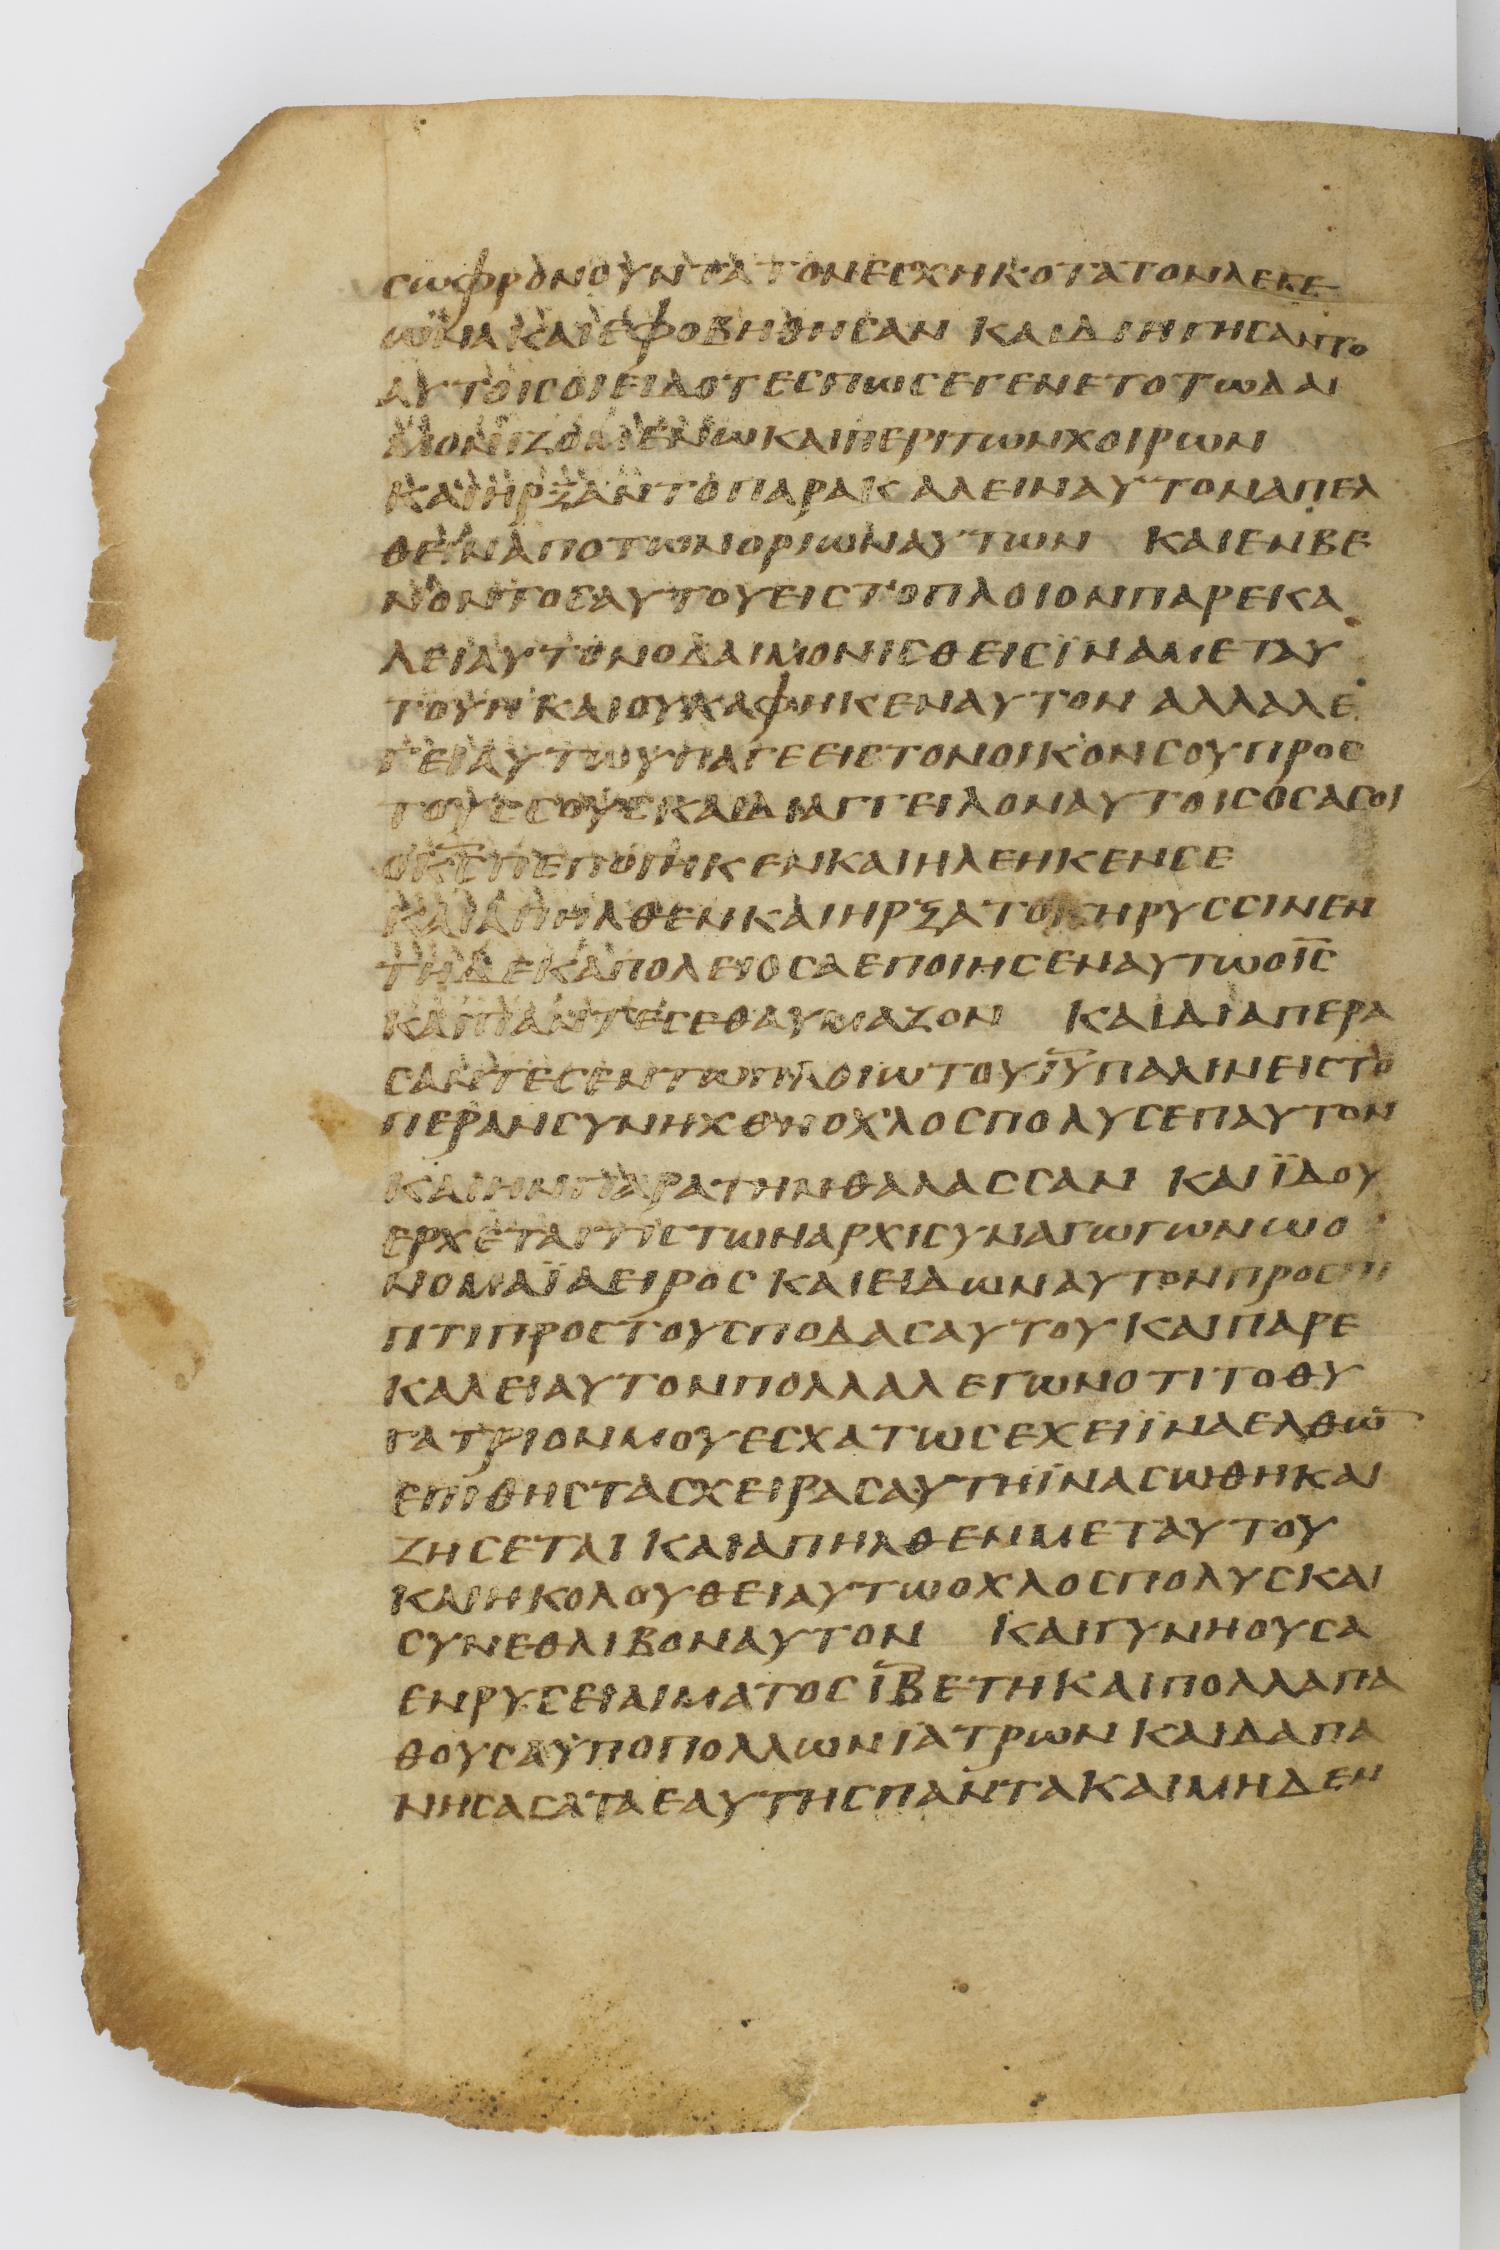 ϲωφρονουντα τον εϲχηκοτα τον λεγε
ωνα και εφοβηθηϲαν και διηγηϲαντο
αυτοιϲ οι ειδοτεϲ πωϲ εγενετο τω δαι
μονιζομενω και περι των χοιρων
και ηρξαντο παρακαλειν αυτον απελ
θειν απο των οριων αυτων και ενβε
νοντοϲ αυτου ειϲ το πλοιον παρεκα
λει αυτον ο δαιμονιϲθειϲ ϊνα μετ αυ
του η και ουκ αφηκεν αυτον αλλα λε
γει αυτω υπαγε ειϲ τον οικον ϲου προϲ
τουϲ ϲουϲ και διαγγειλον αυτοιϲ οϲα ϲοι
ο κ̅ϲ̅ πεποιηκεν και ηλεηκεν ϲε
και απηλθεν και ηρξατο κηρυϲϲιν εν
τη δεκαπολει οϲα εποιηϲεν αυτω ο ι̅ϲ̅
και παντεϲ εθαυμαζον και διαπερα
ϲαντεϲ εν τω πλοιω του ι̅υ̅ παλιν ειϲ το
περαν ϲυνηχθη οχλοϲ πολυϲ επ αυτον
και ην παρα την θαλαϲϲαν και ϊδου
ερχεται τιϲ των αρχιϲυναγωγων ω ο
νομα ϊαειροϲ και ειδων αυτον προϲπι
πτι προϲ τουϲ ποδαϲ αυτου και παρε
καλει αυτον πολλα λεγων οτι το θυ
γατριον μου εϲχατωϲ εχει ϊνα ελθω̅
επιθηϲ ταϲ χειραϲ αυτη ϊνα ϲωθη και
ζηϲεται και απηλθεν μετ αυτου
και ηκολουθει αυτω οχλοϲ πολυϲ και
ϲυνεθλιβον αυτον και γυνη ουϲα
εν ρυϲει αιματοϲ ι̅β̅ ετη και πολλα πα
θουϲα υπο πολλων ιατρων και δαπα
νηϲαϲα τα εαυτηϲ παντα και μηδεν